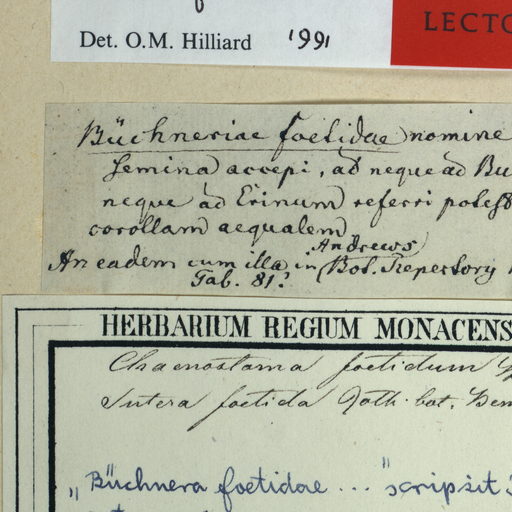 Det. O.M. Hilliard 1991
LECTO
Büchneriae foetidae nomine
Semina accepi, at neque ad Bu
neque ad Erinum referri potest
corollam aequalem
Andrews
An eadem cum illa in Bot. Repertory
Tab. 81?
HERBARIUM REGIUM MONACENS
Chaenostoma foetidum
Sutera foetida Roth. bot.
„Büchnera foetidae ..." scripsit